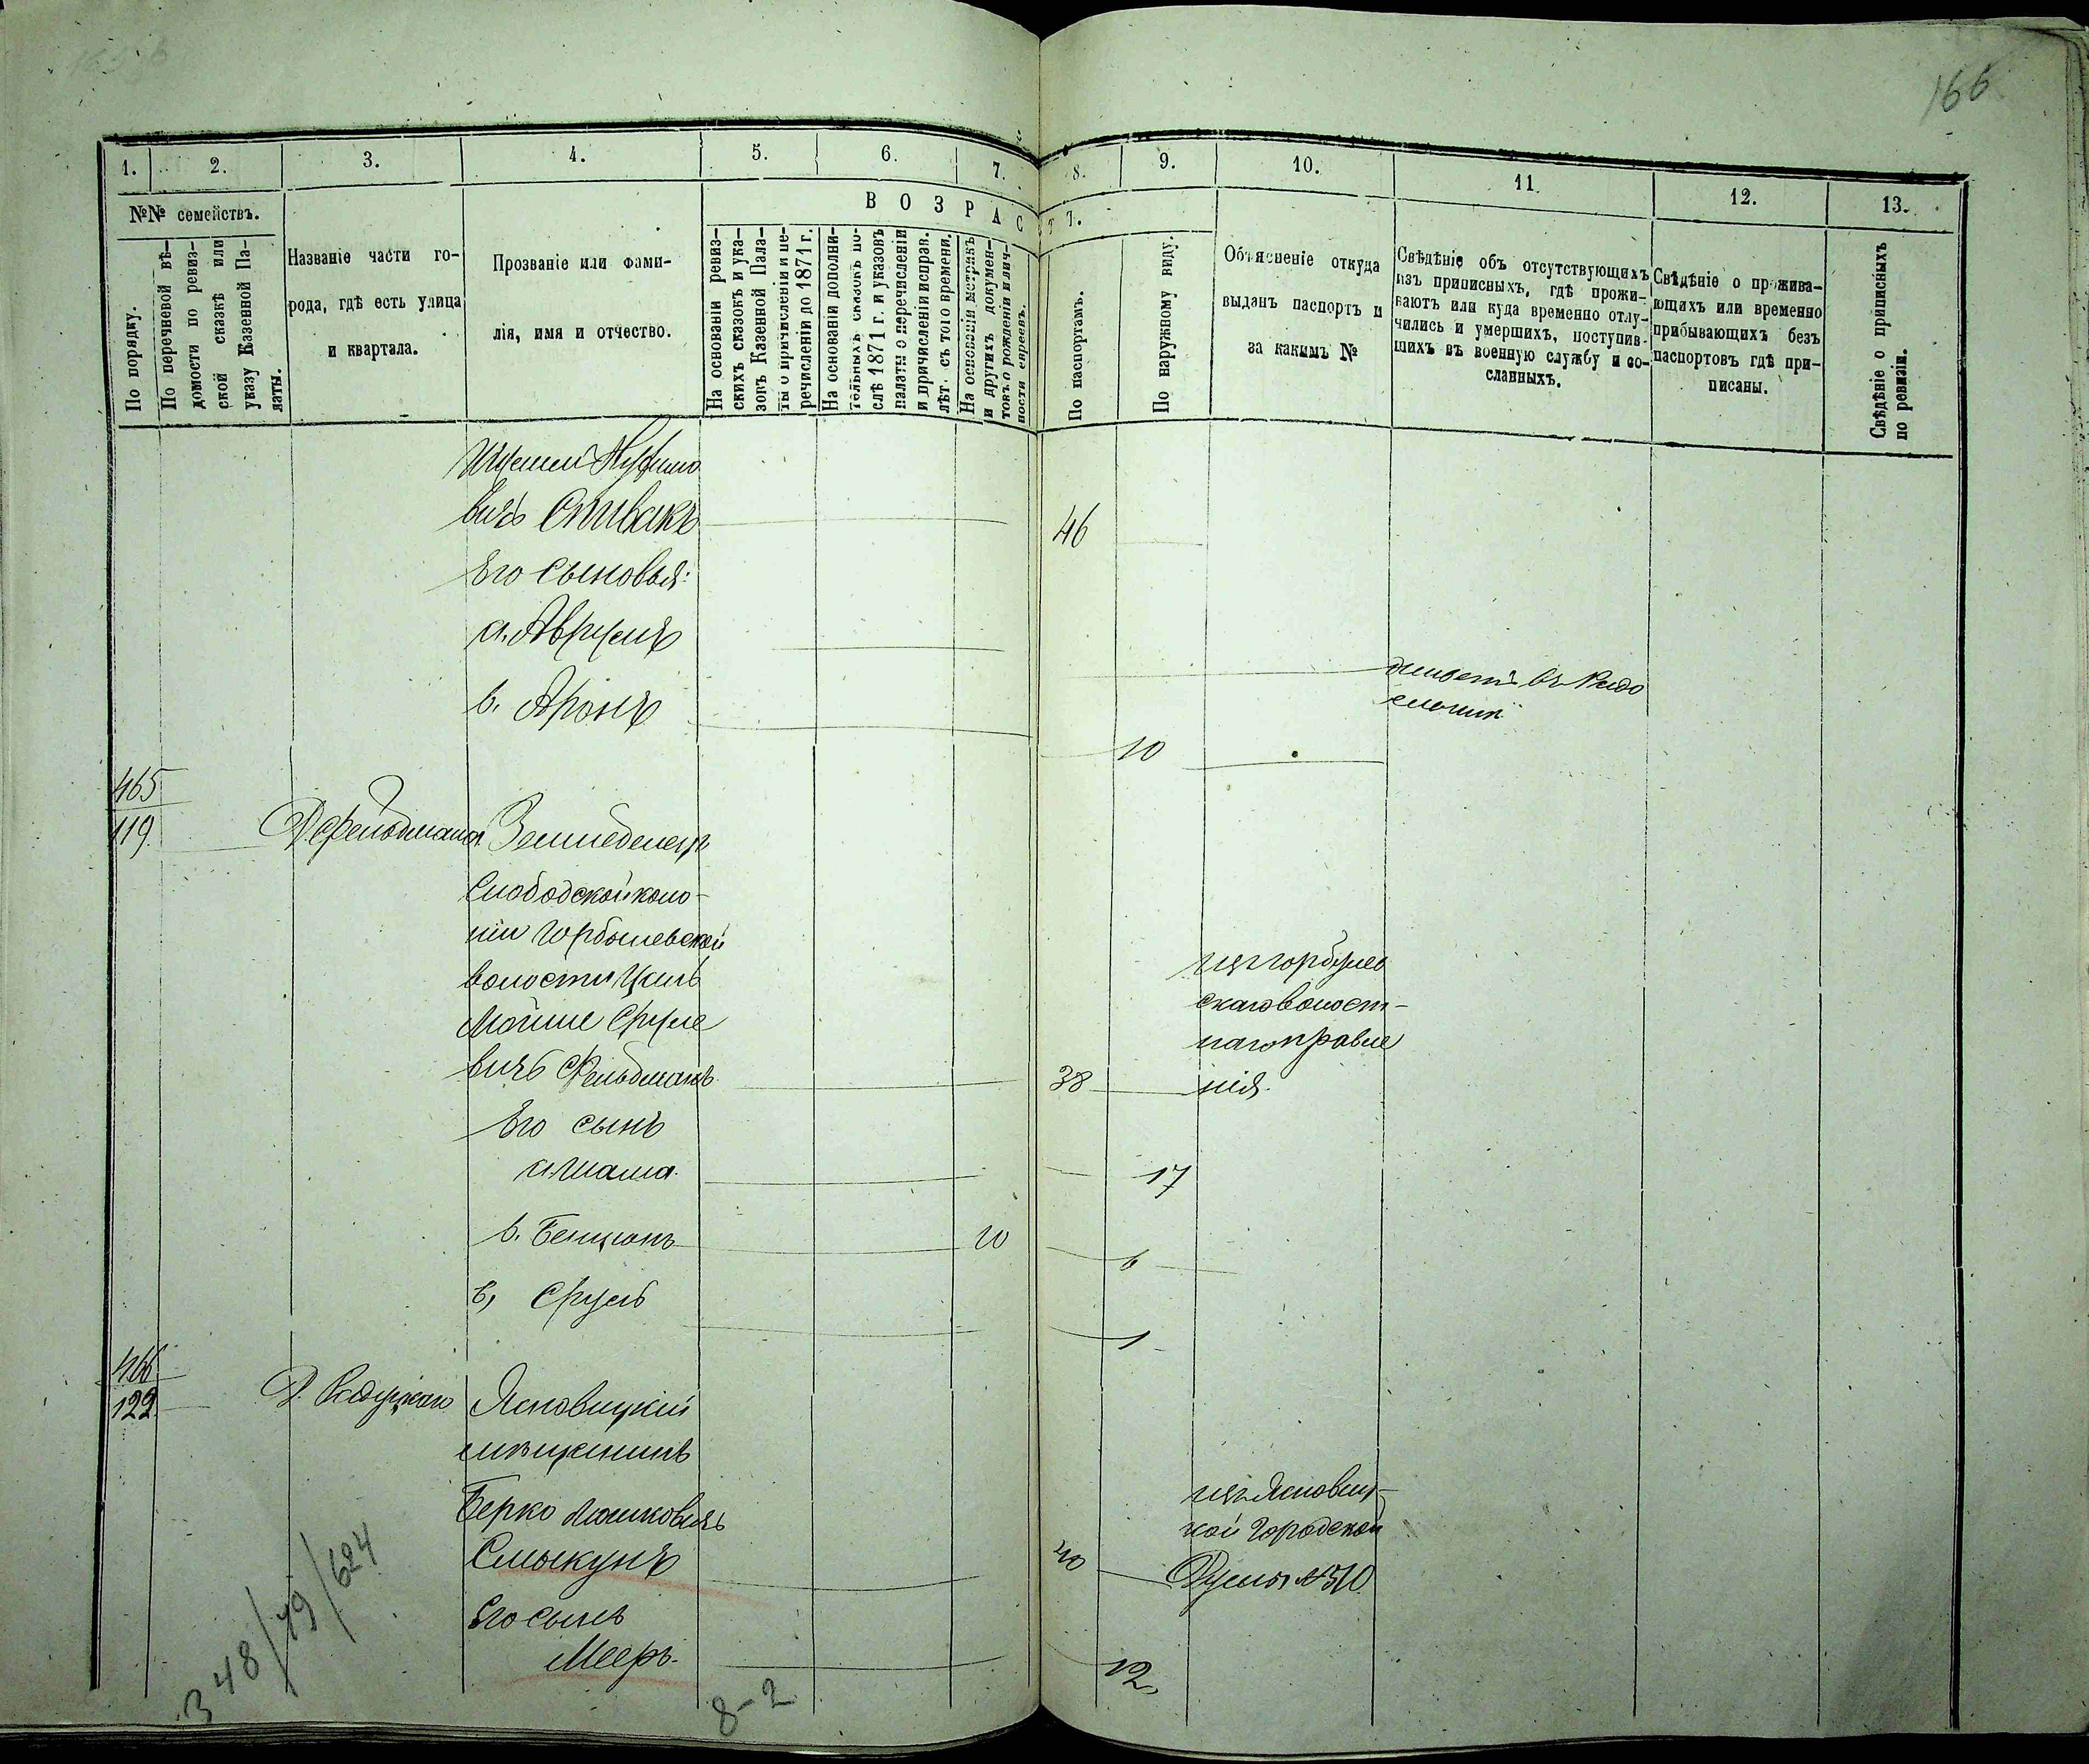 166
1. 2. 3. 4. 5. 6. 7. 8. 9. 10. 11. 12. 13.
№№ семействъ.
По порядку.
По перечневой вѣ-
домости по ревиз-
ской сказкѣ или
указу Казенной Па-
латы.
Названіе части го-
рода, гдѣ есть улица
и квартала.
Прозваніе или фами-
лія, имя и отчество.
ВОЗРАСТЪ.
На основаніи ревиз-
скихъ сказокъ и ука-
зовъ Казенной Пала-
ты о причисленіи и пе-
речисленіи до 1871 г.
На основаніи дополни-
тельныхъ сказокъ по-
слѣ 1871 г. и указовъ
палаты о перечисленіи
и причисленіи исправ.
лѣт. съ того времени.
На основаніи метрикъ
и другихъ докумен-
товъ о рожденіи и лич-
ности евреевъ.
По паспортамъ.
По наружному виду.
Объясненіе откуда
выданъ паспортъ и
за какимъ №
Свѣдѣніе объ отсутствующихъ
изъ приписныхъ, гдѣ прожи-
ваютъ или куда временно отлу-
чились и умершихъ, поступив-
шихъ въ военную службу и со-
сланныхъ.
Свѣдѣніе о прожива-
ющихъ или временно
прибывающихъ безъ
паспортовъ гдѣ при-
писаны.
Свѣдѣніе о приписныхъ
по ревизіи.
вичъ Спивакъ 46
Его сыновья:
а. Аврумъ
живетъ въ Радо
мыслѣ
в. Аронъ 10
465
119 Д. Фельдмана Земледелецъ
Слободской коло-
ніи Горбылевской
волости
Мойше Сруле
вичъ Фельдманъ 38
изъ Горбулев
скаго волост-
наго правле
нія.
Его сынъ
а. Шама 17
б. Бенціонъ 10 6
в, Сруль 1
466
122 Ясновицкій
мѣщанинъ
Берко Мошковичъ
Смыкунъ 40
Городской
Думы № 510
Его сынъ
Мееръ. 12
348/79/624
8-2